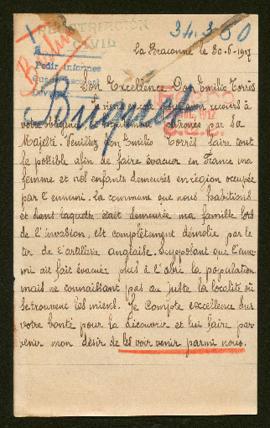 34.350
La Braconne le 20-6-1917
Son Excellence Don Emilio Torres
recours à
votre par Sa
Majesté. Veuillez Don Emilio Torrès faire tout
le possible afin de faire évacuer en France ma
femme et mes enfants demeurés en région occupée
par l'ennemi, la commune que nous habitions
et dans laquelle était demeurée ma famille lors
de l'invasion, est complètement démolie par le
tir de l'artillerie anglaise. Supposant que l'enne-
mi ait fait évacuer plus à l'abri la population
mais ne connaissant pas au juste la localité où
se trouvent les miens. Je compte excellence sur
votre bonté pour la découvrir et leur faire par
venir mon désir de les voir venir parmi nous.